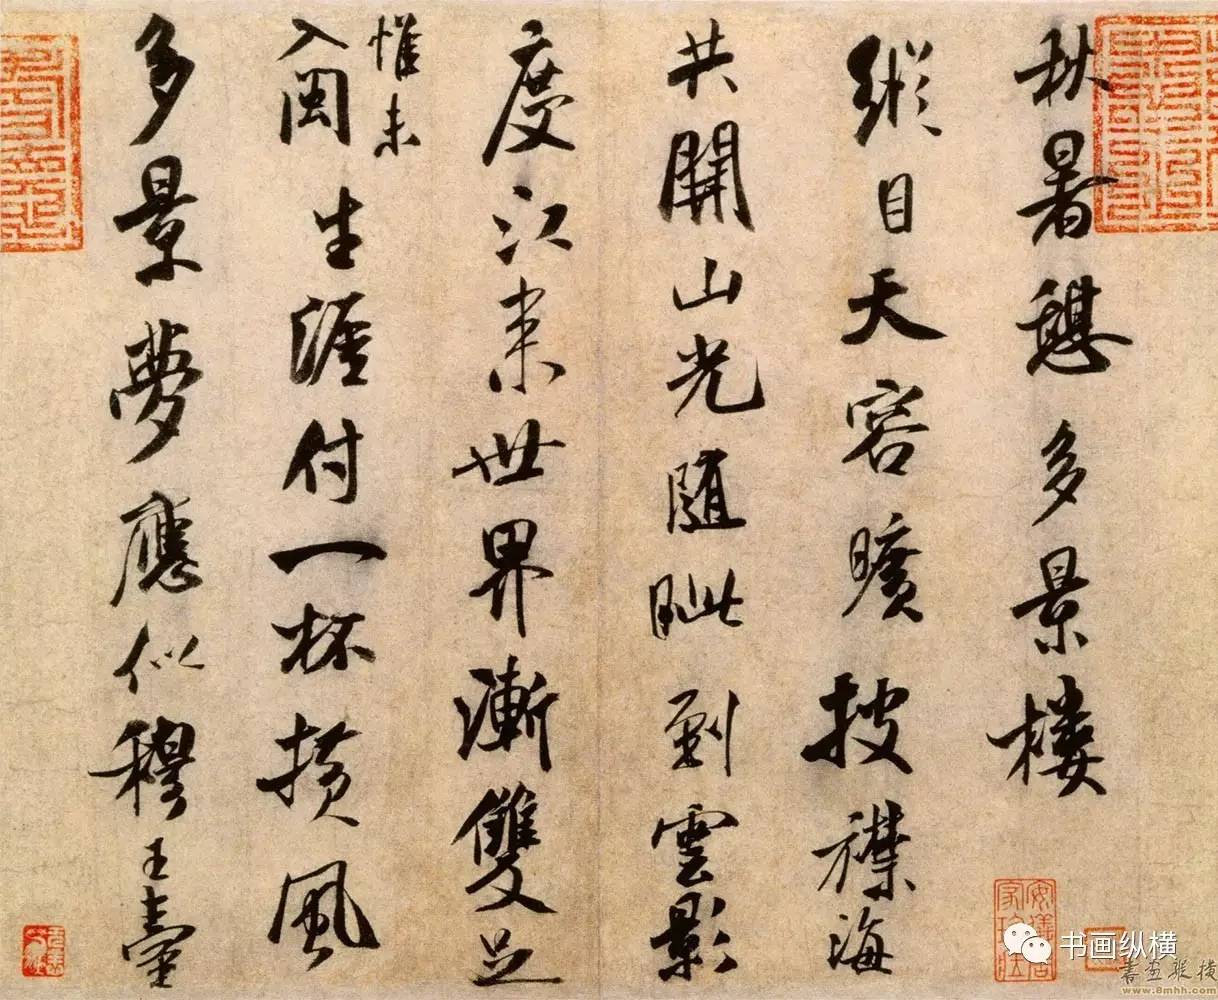 秋暑憩多景楼
縱目天容曠披襟海
共開山光隨眦到雲影
度江来世界漸雙足
惟未
入閩生涯付一杯横風
多景夢應似穆王臺
书画纵横
書画纵横
www.8mhh.com